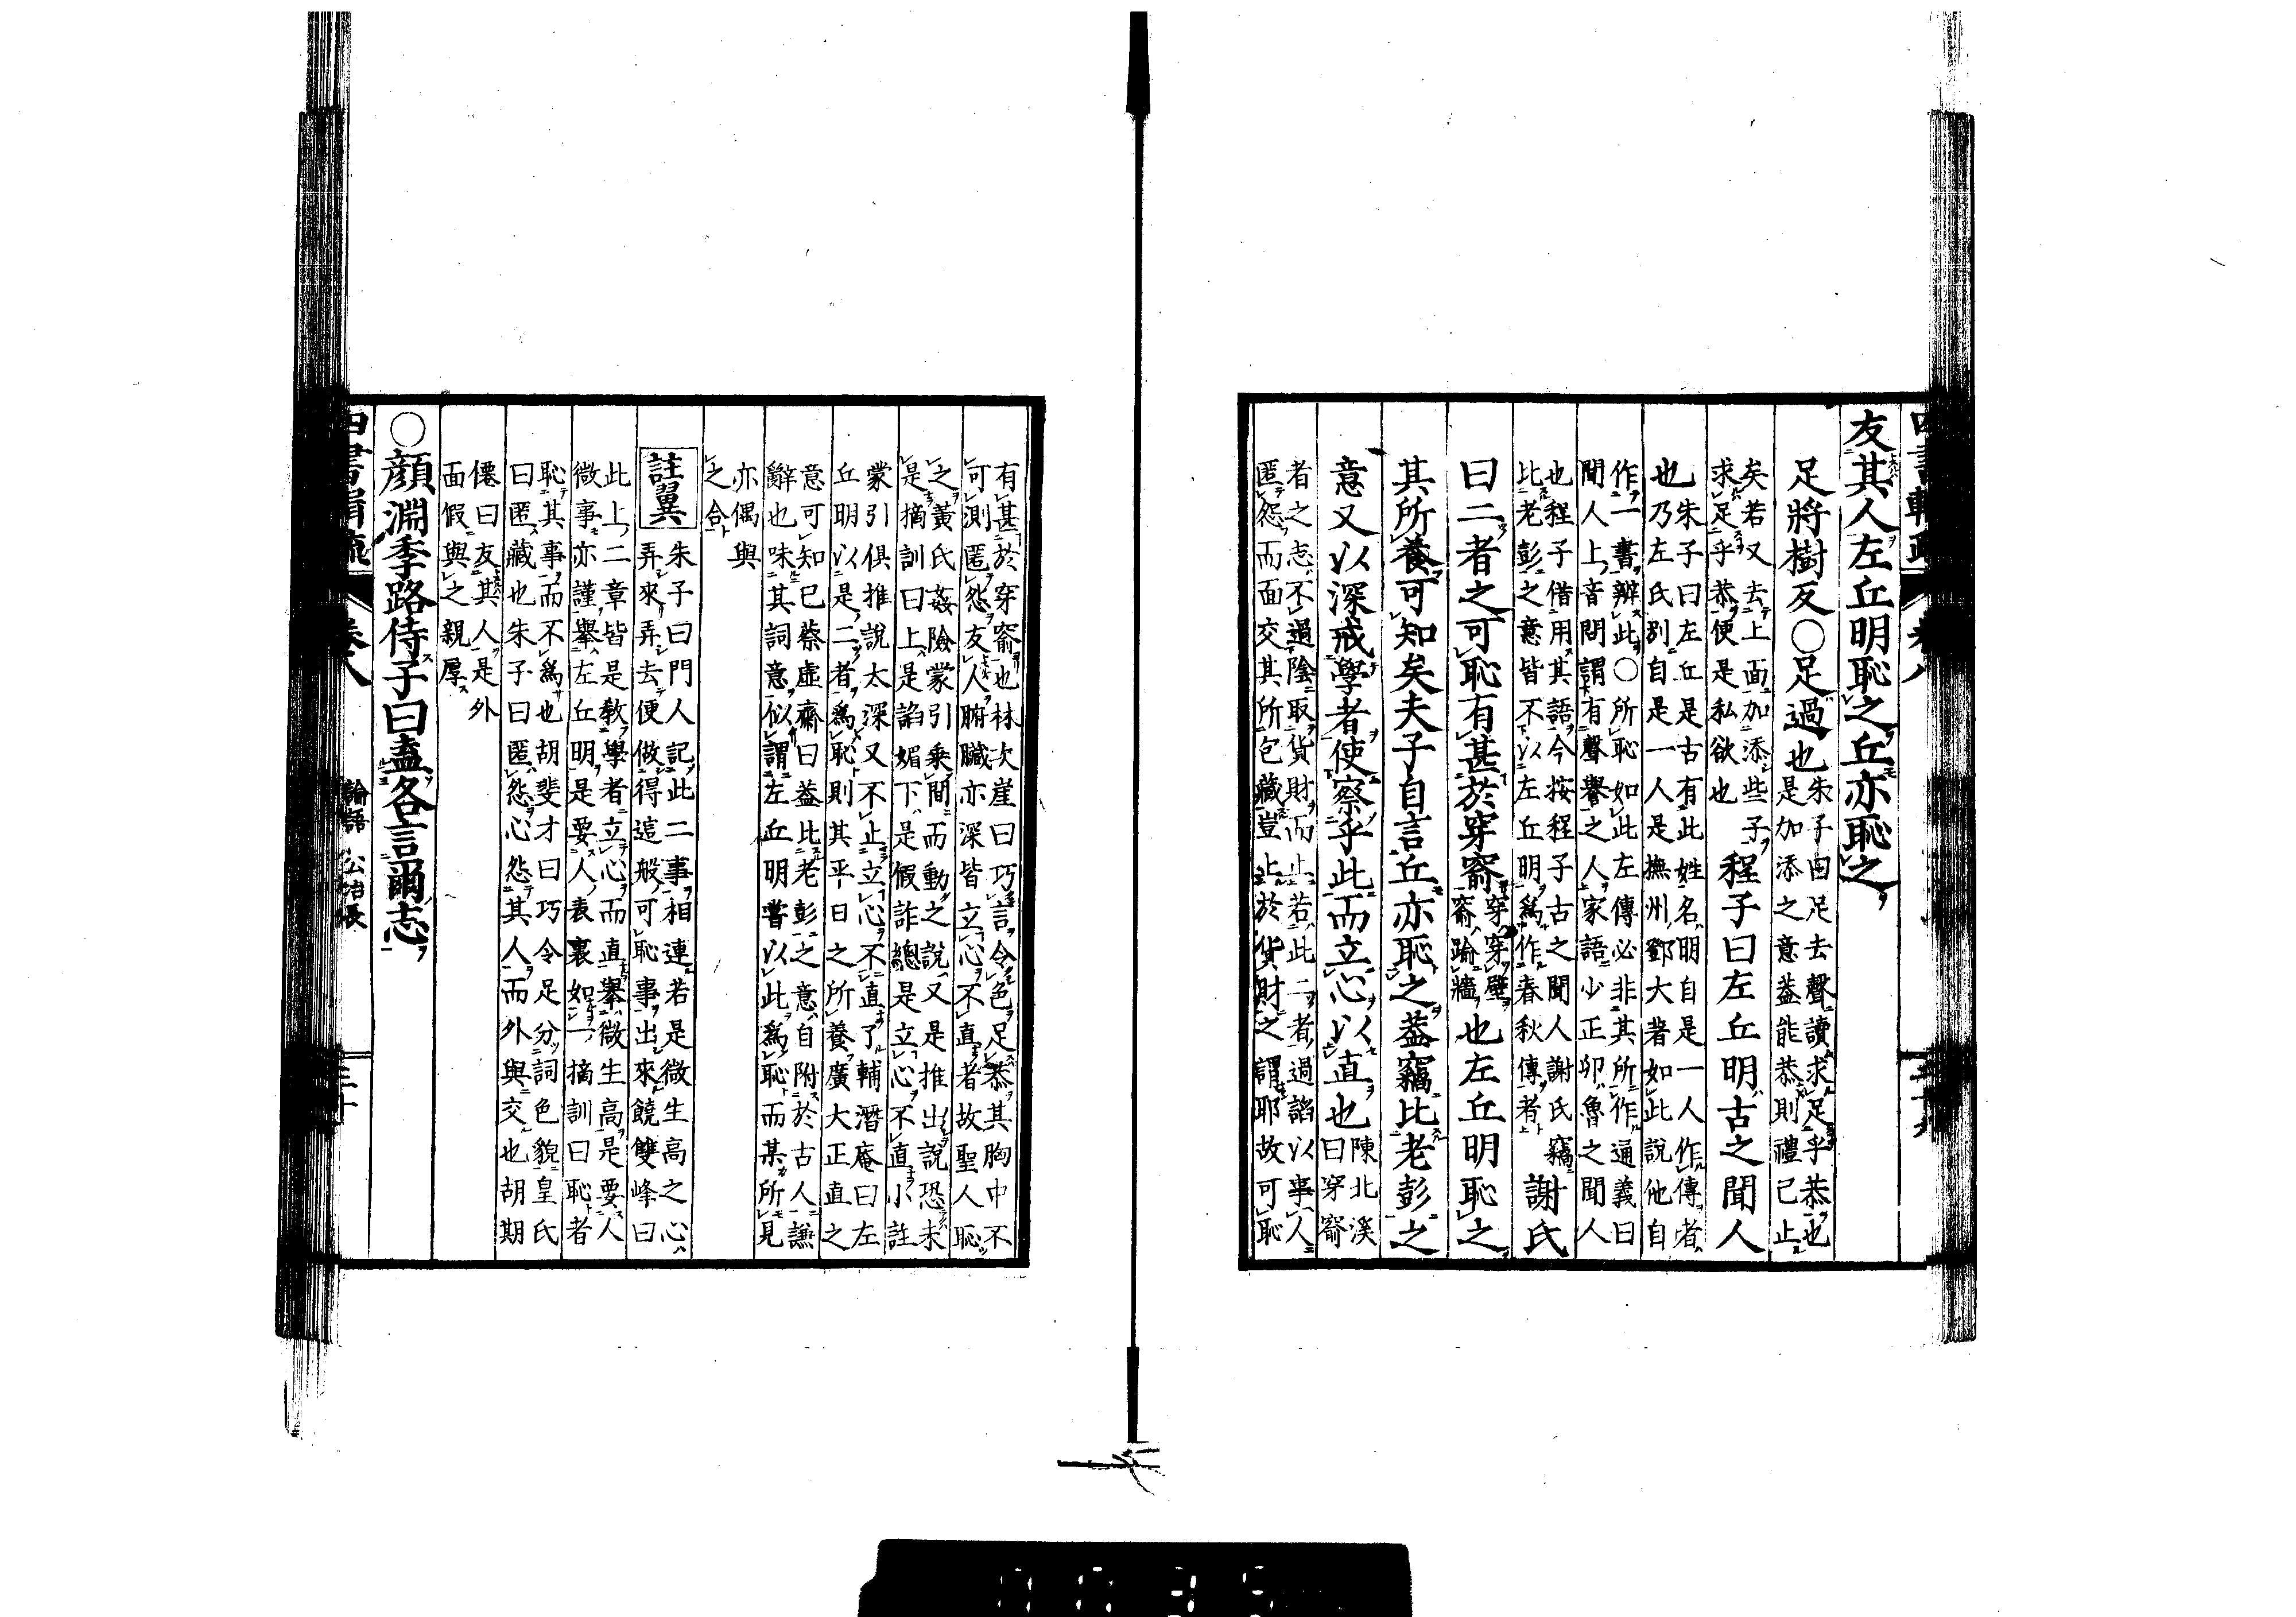 友其人左丘明恥之丘亦恥之
足將樹反○足過也朱子曰足去聲讀求足乎恭也
是加添之意蓋能恭則禮已止
矣若又去上面加添些子
求足乎恭便是私欲也
程子曰左丘明古之聞人
也朱子曰左丘是古有此姓名明自是一人作傳者
乃左氏別自是一人是撫州鄧大著如此說他自
作一書辨此○所恥如此左傳必非其所作通義曰
聞人上音問謂有聲譽之人家語少正卯魯之聞人
也程子借用其語今按程子古之聞人謝氏竊
比老彭之意皆不以左丘明為作春秋傳者
謝氏
曰二者之可恥有甚於穿窬穿穿壁
窬踰牆也左丘明恥之
其所養可知矣夫子自言丘亦恥之蓋竊比老彭之
意又以深戒學者使察乎此而立心以直也陳北溪
曰穿窬
者之志不過陰取貨財而止若此二者過諂以事人
匿怨而面交其所包藏豈止於貨財之謂耶故可恥
有甚於穿窬也林次崖曰巧言令色足恭其胸中不
可測匿怨友人腑臟亦深皆立心不直者故聖人恥
之黃氏姦險蒙引乘間而動之說又是推出說恐未
是摘訓曰上是諂媚下是假詐總是立心不直小註
蒙引俱推說太深又不止立心不直了輔潛庵曰左
丘明以是二者為恥則其平日之所養廣大正直之
意可知已蔡虛齋曰蓋比老彭之意自附於古人謙
辭也味其詞意似謂左丘明嘗以此為恥而某所見
亦偶與
之合
註翼
朱子曰門人記此二事相連若是微生高之心
弄來弄去便做得這般可恥事出來饒雙峰曰
此上二章皆是教學者立心而直舉微生高是要人
微事亦謹舉左丘明是要人表裏如一摘訓曰恥者
恥其事而不為也胡斐才曰巧令足分詞色貌皇氏
曰匿藏也朱子曰匿怨心怨其人而外與交也胡期
僊曰友其人是外
面假與之親厚
○顏淵季路侍子曰盍各言爾志
論語 公冶長